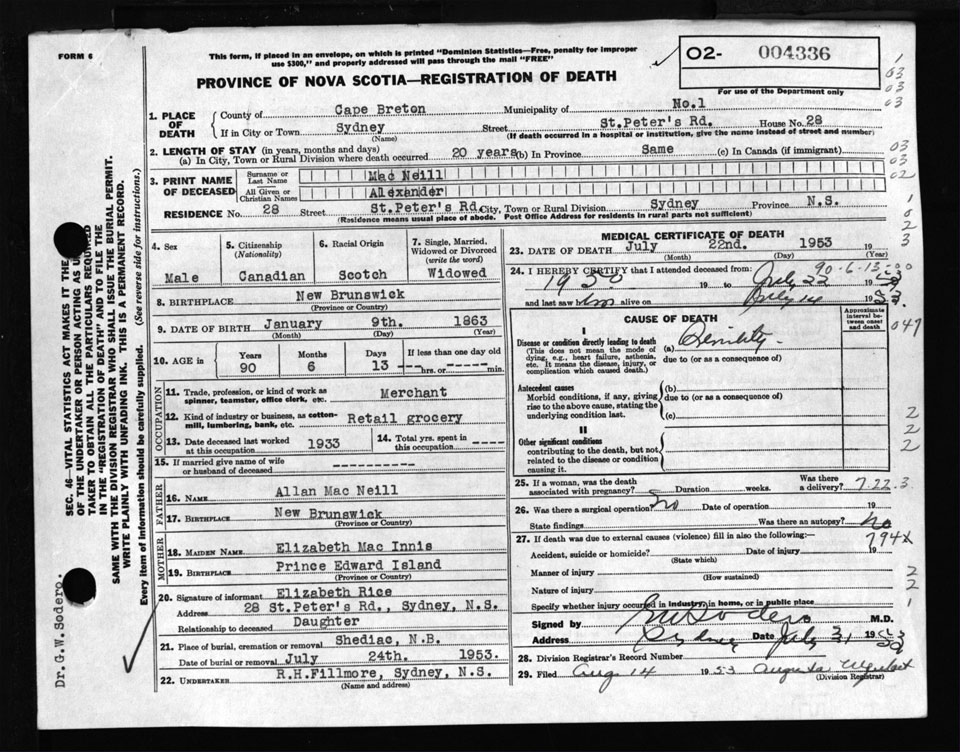 FORM 6
This form, if placed in an envelope, on which is printed "Dominion Statistics—Free, penalty for improper
use $300," and properly addressed will pass through the mail "FREE"
O2- 004336
For use of the Department only
PROVINCE OF NOVA SCOTIA—REGISTRATION OF DEATH
1. PLACE OF DEATH
County of Cape Breton Municipality of No.1
If in City or Town Sydney Street St.Peter's Rd. House No. 28
(Name) (If death occurred in a hospital or institution, give the name instead of street and number)
2. LENGTH OF STAY (in years, months and days)
(a) In City, Town or Rural Division where death occurred 20 years (b) In Province Same (c) In Canada (if immigrant)
3. PRINT NAME OF DECEASED
Surname or Last Name Mac Neill
All Given or Christian Names Alexander
RESIDENCE No. 28 Street St.Peter's Rd. City, Town or Rural Division Sydney Province N.S.
(Residence means usual place of abode. Post Office Address for residents in rural parts not sufficient)
4. Sex Male
5. Citizenship (Nationality) Canadian
6. Racial Origin Scotch
7. Single, Married, Widowed or Divorced (write the word) Widowed
8. BIRTHPLACE New Brunswick
(Province or Country)
9. DATE OF BIRTH January 9th. 1863
(Month) (Day) (Year)
10. AGE in Years 90 Months 6 Days 13 If less than one day old --- hrs. or --- min.
OCCUPATION
11. Trade, profession, or kind of work as spinner, teamster, office clerk, etc. Merchant
12. Kind of industry or business, as cotton-mill, lumbering, bank, etc. Retail grocery
13. Date deceased last worked at this occupation 1933
14. Total yrs. spent in this occupation -----
15. If married give name of wife or husband of deceased ----------
FATHER
16. NAME Allan Mac Neill
17. BIRTHPLACE New Brunswick
(Province or Country)
MOTHER
18. MAIDEN NAME Elizabeth Mac Innis
19. BIRTHPLACE Prince Edward Island
(Province or Country)
20. Signature of informant Elizabeth Rice
Address 28 St.Peter's Rd., Sydney, N.S.
Relationship to deceased Daughter
21. Place of burial, cremation or removal Shediac, N.B.
Date of burial or removal July 24th. 1953.
22. UNDERTAKER R.H.Fillmore, Sydney, N.S.
(Name and address)
MEDICAL CERTIFICATE OF DEATH
23. DATE OF DEATH July 22nd. 1953 19
(Month) (Day) (Year)
90-6-13
24. I HEREBY CERTIFY that I attended deceased from:
1950 19 to July 22 19 53
and last saw him alive on July 14 19 53.
CAUSE OF DEATH
Approximate interval between onset and death
I
Disease or condition directly leading to death
(This does not mean the mode of dying, e.g., heart failure, asthenia, etc. It means the disease, injury, or complication which caused death.)
(a) Senility
due to (or as a consequence of)
Antecedent causes
Morbid conditions, if any, giving rise to the above cause, stating the underlying condition last.
(b)
due to (or as a consequence of)
(c)
II
Other significant conditions
contributing to the death, but not related to the disease or condition causing it.
25. If a woman, was the death associated with pregnancy? Duration weeks. Was there a delivery? 7.22.3
26. Was there a surgical operation? No Date of operation 19
State findings Was there an autopsy? No
27. If death was due to external causes (violence) fill in also the following:— 794X
Accident, suicide or homicide? Date of injury 19
(State which)
Manner of injury
(How sustained)
Nature of injury
Specify whether injury occurred in industry, in home, or in public place
Signed by GW Sodero M.D.
Address Sydney Date July 31 19 53
28. Division Registrar's Record Number
29. Filed Aug 14 1953 Augusta
(Division Registrar)
SEC. 46—VITAL STATISTICS ACT MAKES IT THE
OF THE UNDERTAKER OR PERSON ACTING AS
TAKER TO OBTAIN ALL THE PARTICULARS REQUIRED
IN THE "REGISTRATION OF DEATH" AND TO FILE THE
SAME WITH THE DIVISION REGISTRAR WHO SHALL ISSUE THE BURIAL PERMIT.
WRITE PLAINLY WITH UNFADING INK. THIS IS A PERMANENT RECORD.
Every item of information should be carefully supplied. (See reverse side for instructions.)
Dr. G.W. Sodero.
1
03
03
03
03
03
02
1
0
2
3
047
2
2
2
2
2
1